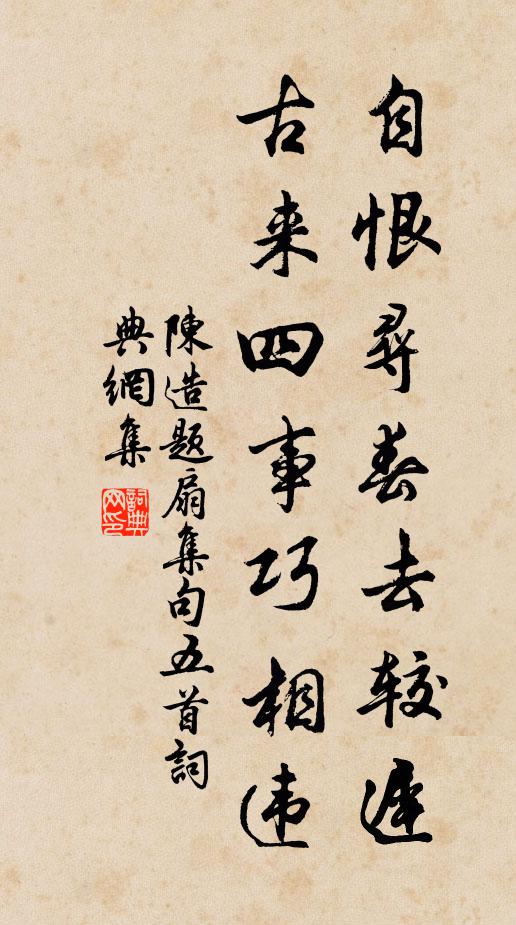 自恨尋春去较遲
古来四事巧相违
陳造题扇集句五首詞
典網集
詞典網印